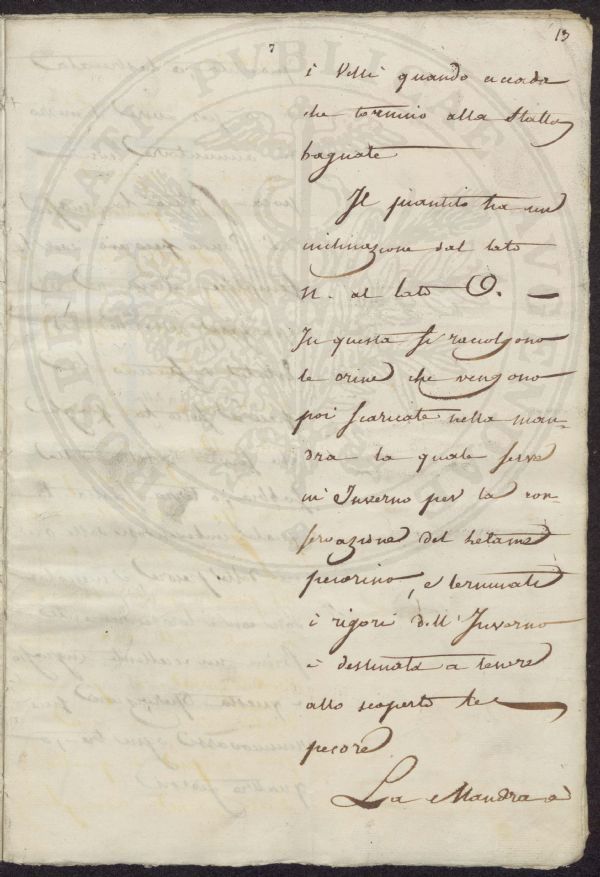 13
7
i Velli quando accada
che tornino alla Stalla
bagnate
Il piantito ha un
inclinazione dal lato
N. al lato O.
In questa si racolgono
le orine che vengono
poi scaricate nella man-
dra la quale serve
in Inverno per la con-
servazione del letame
pecorino, e terminati
i rigori dell' Inverno
è destinata a tenere
allo scoperto le
pecore
La Mandra è